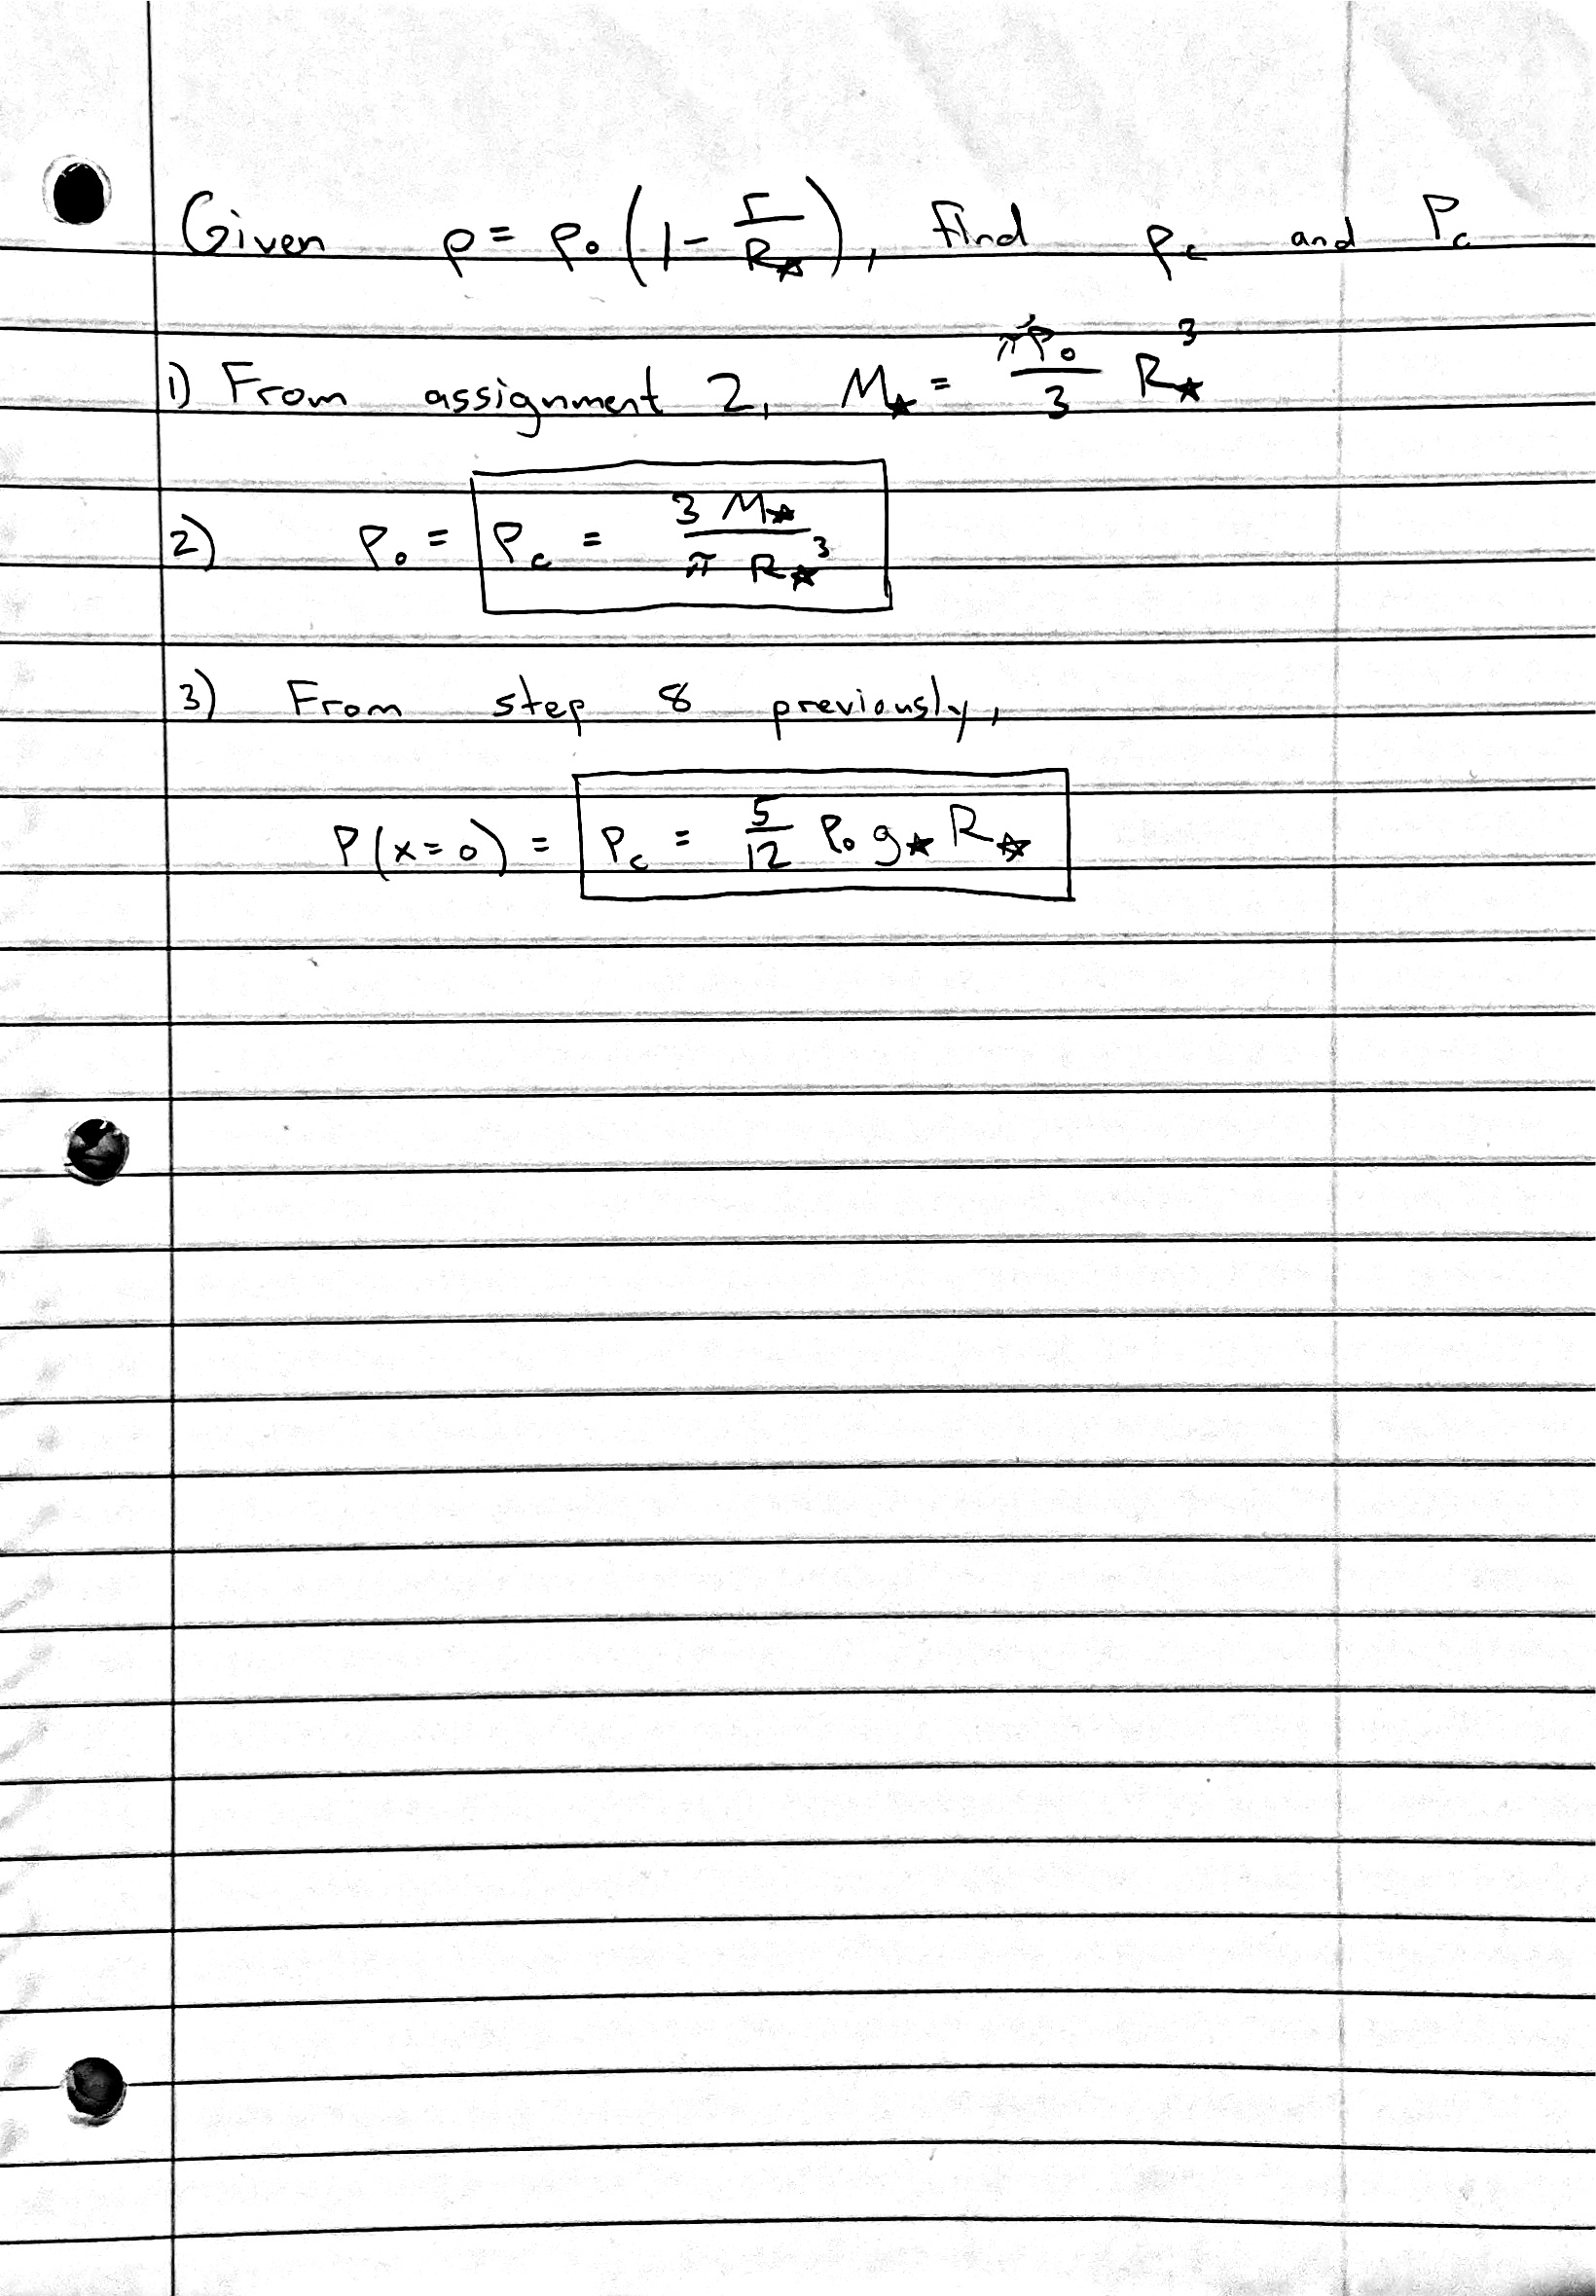 Given ρ = ρ₀ (1 - r/R★), find ρc and Pc
1) From assignment 2, M★ = πρ₀/3 R★³
2) ρ₀ = ρc = 3 M★ / π R★³
3) From step 8 previously,
P(x=0) = Pc = 5/12 ρ₀ g★ R★